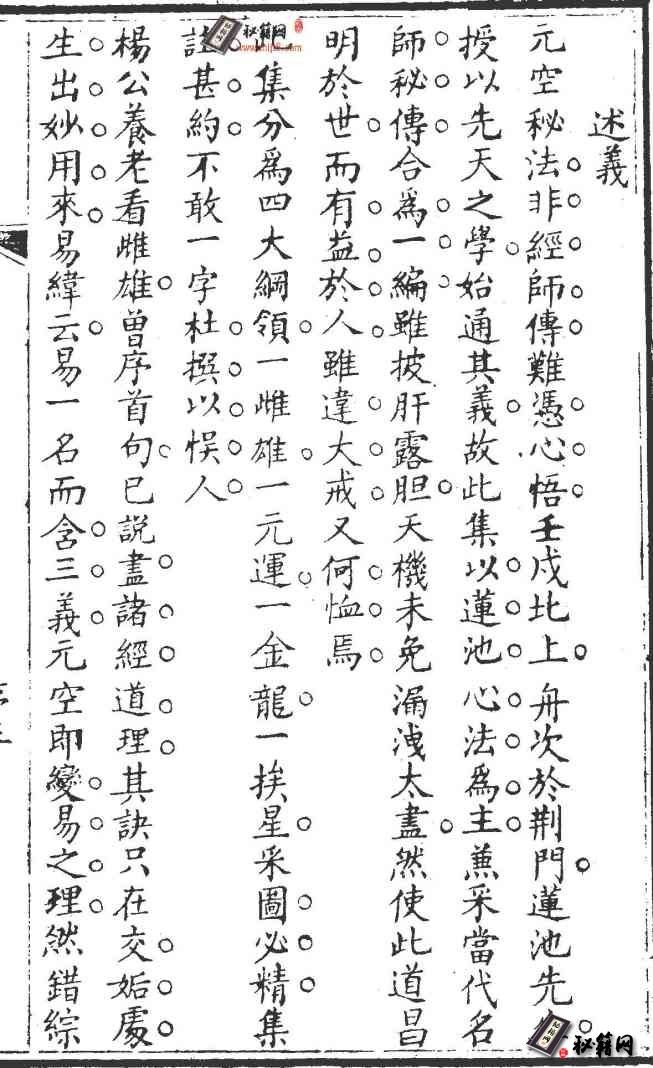 述義
元空秘法非經師傳難憑心悟壬戌北上舟次於荆門蓮池先
授以先天之學始通其義故此集以蓮池心法爲主蒹采當代名
師秘傳合爲一編雖披肝露胆天機未免漏洩太盡然使此道昌
明於世而有益於人雖違大戒又何恤焉
集分爲四大綱領一雌雄一元運一金龍一挨星采圖必精集
註甚約不敢一字杜撰以悮人
楊公養老看雌雄曾序首句已説盡諸經道理其訣只在交姤處
生出妙用來易緯云易一名而含三義元空即變易之理然錯綜
秘籍网
秘籍网